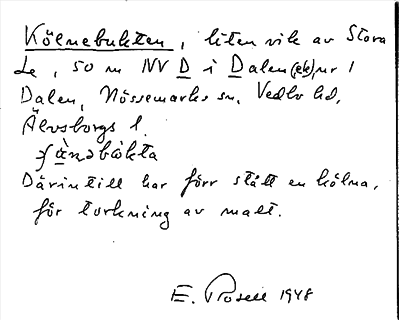 Kölnebukten, liten vik av Stora
Le, 50 m NV D i Dalen (ek), nr 1
Dalen, Nössemarks sn, Vedbo hd,
Älvsborgs l.
Därintill har förr stått en kölna,
för torkning av malt.
E. Rosell 1948